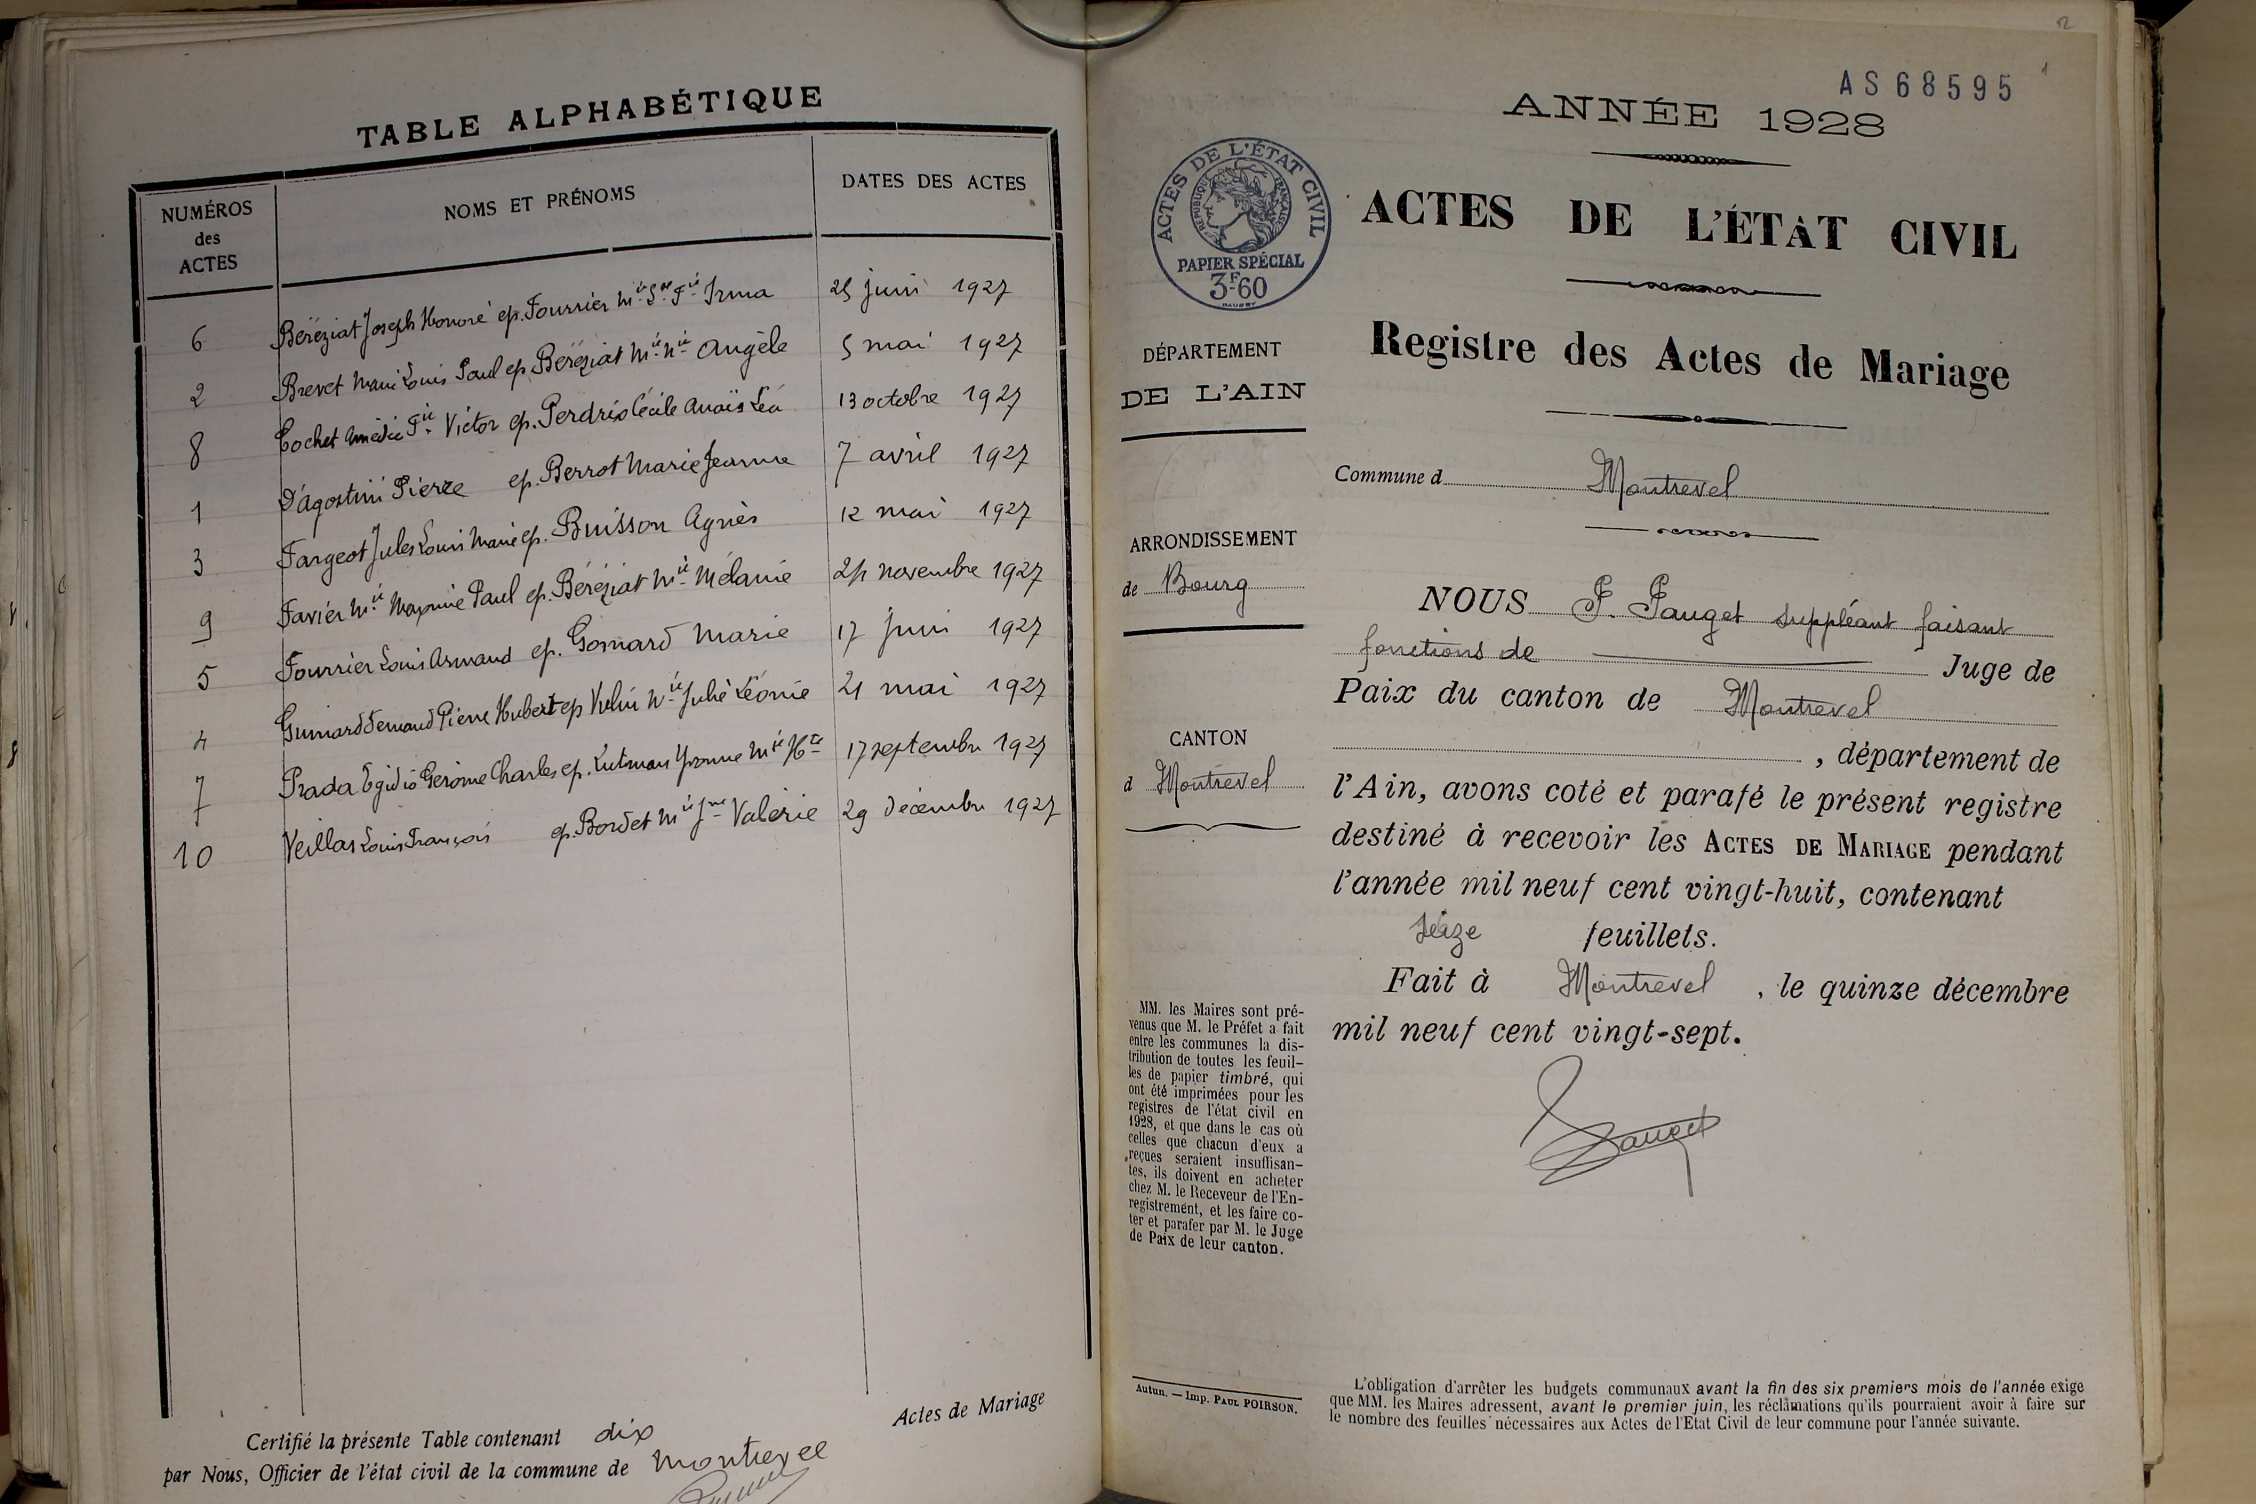 TABLE ALPHABÉTIQUE
NUMÉROS
des
ACTES
NOMS ET PRÉNOMS
DATES DES ACTES
6 Béréziat Joseph Honoré ep. Fournier Mie Irma 25 juin 1927
2 Brevet Marie Louis Paul ep. Béréziat Mie Angèle 5 mai 1927
8 Cochet Amédée Victor ep. Perdrix Cécile Anaïs Léa 13 octobre 1927
1 D'Agostini Pierre ep. Berrot Marie Jeanne 7 avril 1927
3 Fargeot Jules Louis Marie ep. Buisson Agnès 12 mai 1927
9 Favier Mie Maxime Paul ep. Béréziat Mie Mélanie 24 novembre 1927
5 Fourrier Louis Armand ep. Gomard Marie 17 juin 1927
4 Guinard Fernand Pierre Hubert ep Vulin Julie Léonie 21 mai 1927
7 Prada Egidio Gerôme Charles ep. Lutman Yvonne Mie Hte 17 septembre 1927
10 Veillas Louis François ep. Bordet Mie Jne Valérie 29 décembre 1927
Actes de Mariage
Certifié la présente Table contenant dix
par Nous, Officier de l'état civil de la commune de Montrevel
AS 68595
1
ANNÉE 1928
ACTES DE L'ÉTAT CIVIL
RÉPUBLIQUE FRANÇAISE
PAPIER SPÉCIAL
3F60
ACTES DE L'ÉTAT CIVIL
Registre des Actes de Mariage
DÉPARTEMENT
DE L'AIN
Commune d Montrevel
ARRONDISSEMENT
de Bourg
CANTON
d Montrevel
NOUS P. Pauget suppléant faisant
fonctions de Juge de
Paix du canton de Montrevel
, département de
l'Ain, avons coté et parafé le présent registre
destiné à recevoir les ACTES DE MARIAGE pendant
l'année mil neuf cent vingt-huit, contenant
seize feuillets.
Fait à Montrevel, le quinze décembre
mil neuf cent vingt-sept.
Pauget
MM. les Maires sont pré-
venus que M. le Préfet a fait
entre les communes la dis-
tribution de toutes les feuil-
les de papier timbré, qui
ont été imprimées pour les
registres de l'état civil en
1928, et que dans le cas où
celles que chacun d'eux a
reçues seraient insuffisan-
tes, ils doivent en acheter
chez M. le Receveur de l'En-
registrement, et les faire co-
ter et parafer par M. le Juge
de Paix de leur canton.
Autun. — Imp. PAUL POIRSON.
L'obligation d'arrêter les budgets communaux avant la fin des six premiers mois de l'année exige
que MM. les Maires adressent, avant le premier juin, les réclamations qu'ils pourraient avoir à faire sur
le nombre des feuilles nécessaires aux Actes de l'Etat Civil de leur commune pour l'année suivante.